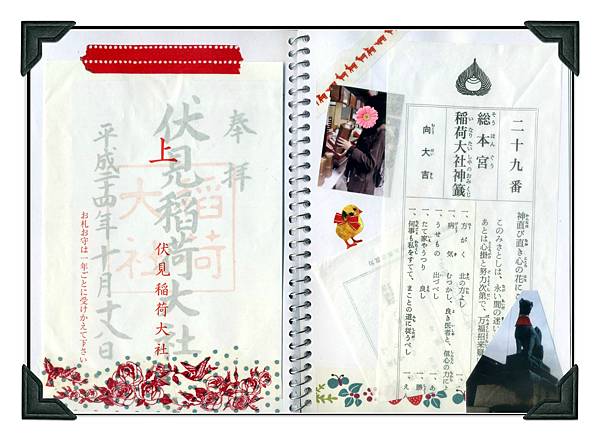 奉拝
伏見稲荷大社
平成二十四年十月十八日
稲荷大社
上
伏見稲荷大社
お札お守は一年ごとに受けかえて下さい
二十九番
総本宮
稲荷大社神籤
向大吉
神直び直き心の花に
このみさとしは、永い間の迷い
あとは心掛と努力次第で、万福招来
一、方がく 北の方よし
一、病気 むつかし、良き医者と、信心の力に
一、うせもの 出づべし
一、たて家やうつり 良し
一、何事も私をすてて、まことの道に従うべし